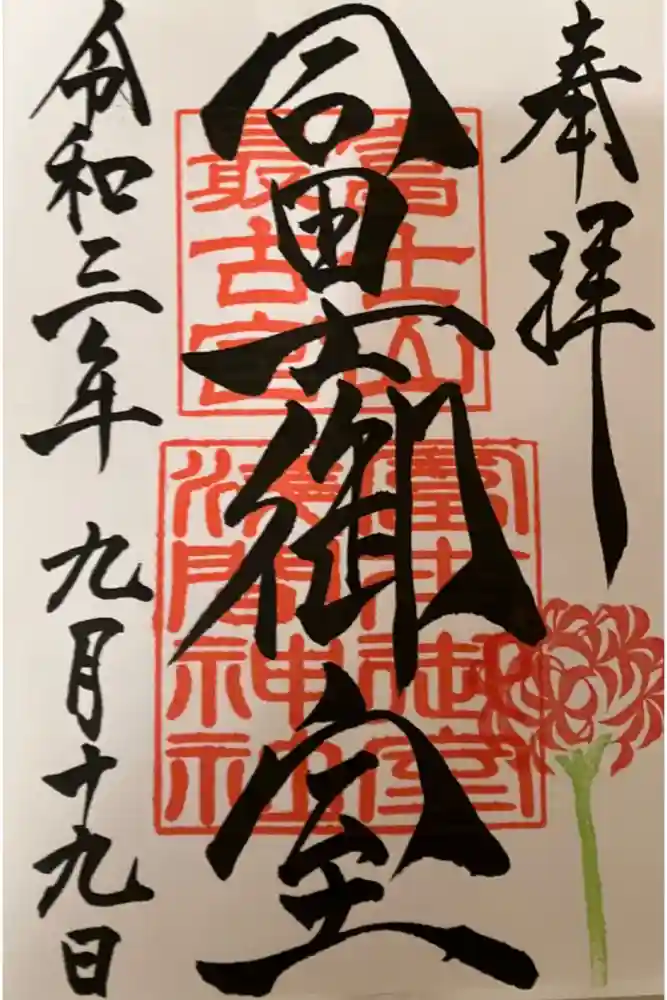 奉拝
冨士御室
富士山
最古宮
冨士御室
淺間神社
令和三年 九月十九日